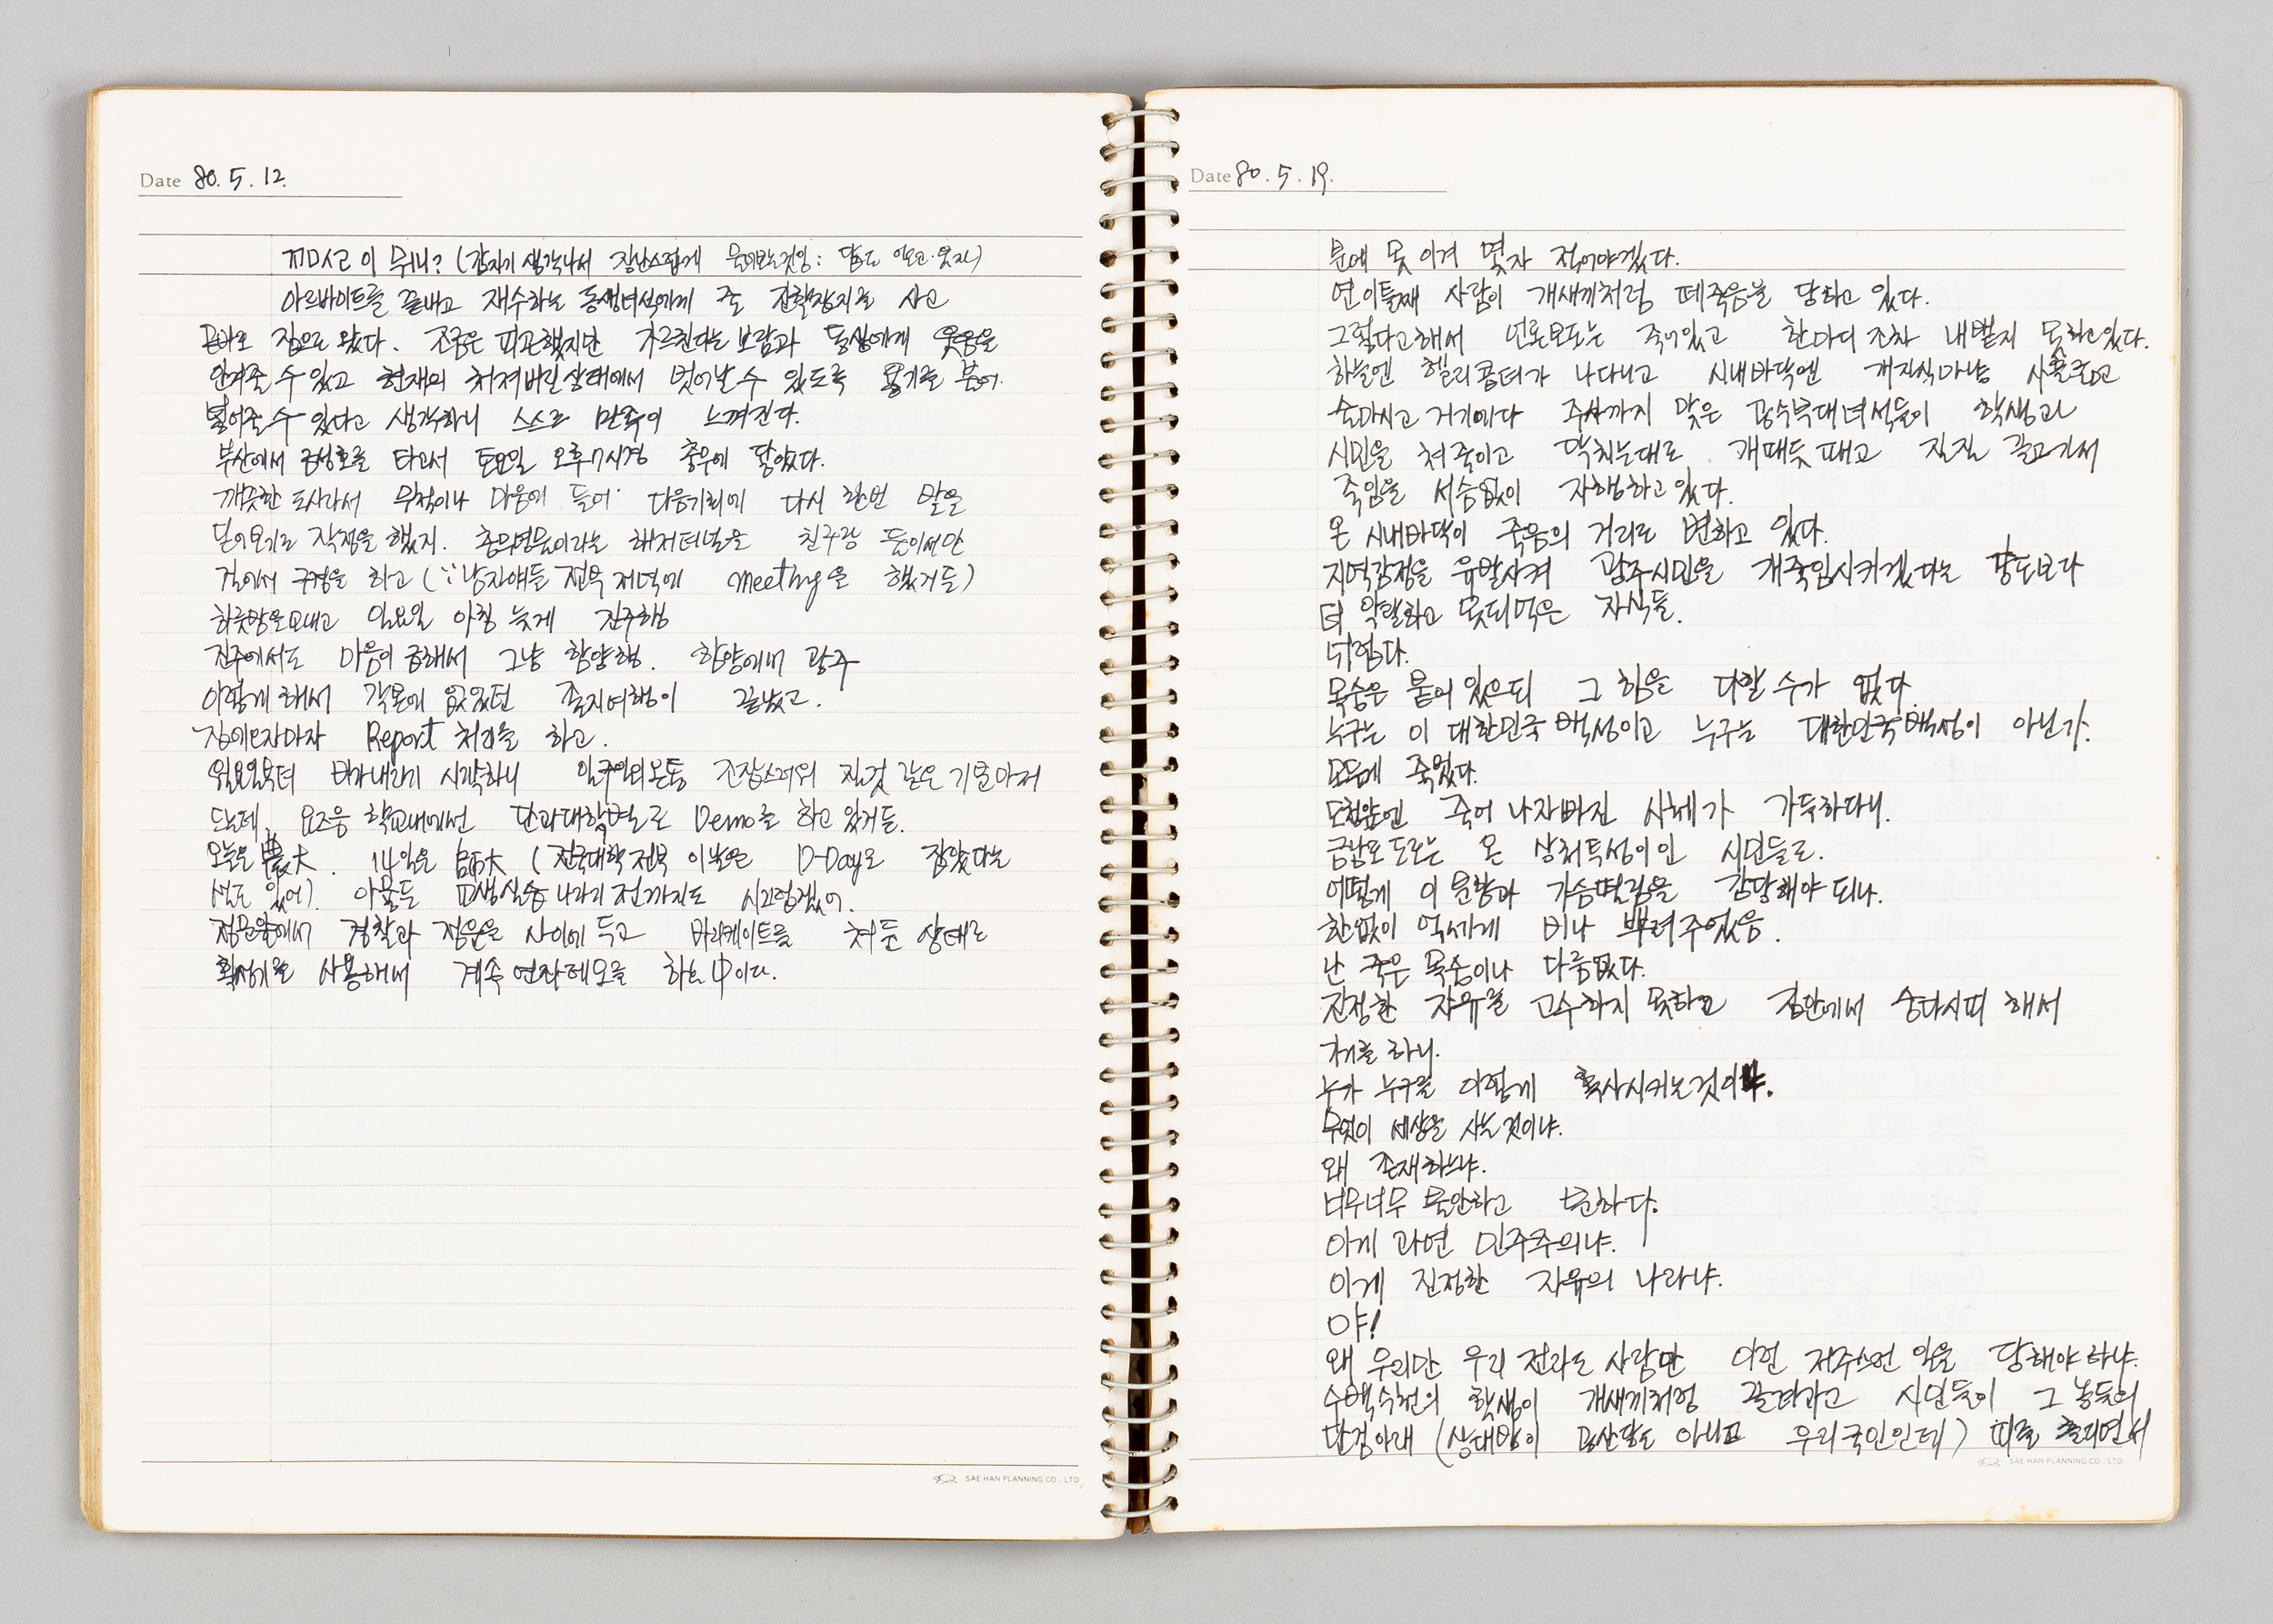 Date 80. 5. 12.
이 뭐니? (갑자기 생각나서 장난스럽게
아르바이트를 끝내고 재수하는 동생녀석에게 줄 진학장지를 사고
집으로 왔다. 조금은 피곤했지만 가르친다는 보람과 동생에게 웃음을
안겨줄 수 있고 현재의 처져버린 상태에서 벗어날 수 있도록 용기를 북어.
넣어줄 수 있다고 생각하니 스스로 만족이 느껴진다.
부산에서 금성호를 타고서 토요일 오후7시경 충무에 닿았다.
깨끗한 도시라서 무척이나 마음에 들어 다음기회에 다시 한번 발을
딛어보기로 작정을 했지. 해저터널을 친구랑 둘이서만
걸어서 구경을 하고 (∵남자얘들 전부 저녁에 meeting을 했거든)
하룻밤을보내고 일요일 아침 늦게 진주행
진주에서도 마음이 급해서 그냥 함양행. 함양에서 광주
이렇게 해서 각본에 없었던 졸지여행이 끝났고.
집에오자마자 Report 처리를 하고.
월요일부터 비가내리기 시작하니 일주일의온통 근장스러워 질것 같은 기분마저
드는데, 요즈음 학교내에선 단과대학별로 Demo를 하고 있거든.
오늘은 農大. 14일은 師大 (전국대학 전부 이날은 D-Day로 잡았다는
설도 있어). 아뭏든 교생실습 나가기 전까지도 시끄럽겠어.
정문앞에서 경찰과 정문을 사이에 두고 바리케이트를 쳐둔 상태로
확성기를 사용해서 계속 연좌데모를 하는 中이다.
SAE HAN PLANNING CO., LTD.
Date 80. 5. 19.
분에 못 이겨 몇자 적어야겠다.
연이틀째 사람이 개새끼처럼 떼죽음을 당하고 있다.
그렇다고해서 언론보도는 죽어있고 한마디 조차 내뱉지 못하고있다.
하늘엔 헬리콥터가 나다니고 시내바닥엔 개자식마냥
술마시고 거기에다 주사까지 맞은 공수부대녀석들이 학생과
시민을 쳐죽이고 닥치는대로 개패듯 패고 질질 끌고가서
죽임을 서슴없이 자행하고 있다.
온 시내바닥이 죽음의 거리로 변하고 있다.
지역감정을 유발시켜 광주시민을 개죽임시키겠다는 강도보다
더 악랄하고 못돼먹은 자식들.
위험다.
목숨은 붙어 있으되 그 힘을 다할 수가 없다.
누구는 이 대한민국 백성이고 누구는 대한민국백성이 아닌가.
모두에 죽었다.
도청앞엔 죽어 나자빠진 시체가 가득하다니.
금남로 도로는 온 상처투성이인 시민들로.
어떻게 이 울분과 가슴떨림을 감당해야 되나.
한없이 억세게 비나 뿌려주었음.
난 죽은 목숨이나 다름없다.
진정한 자유를 고수하지 못하고 집안에서 숨다시피 해서
처를 하니.
누가 누구를 이렇게 혹사시키는것이냐.
무엇이 세상을 사는 것이냐.
왜 존재하느냐.
너무너무 불안하고 분하다.
이게 과연 민주주의냐.
이게 진정한 자유의 나라냐.
야!
왜 우리만 우리 전라도 사람만 이런 저주스런 일을 당해야 하냐.
수백수천의 학생이 개새끼처럼 끌려가고 시민들이 그 놈들의
단검아래 (상대방이 공산당도 아니고 우리국민인데) 피를 흘리면서
SAE HAN PLANNING CO., LTD.